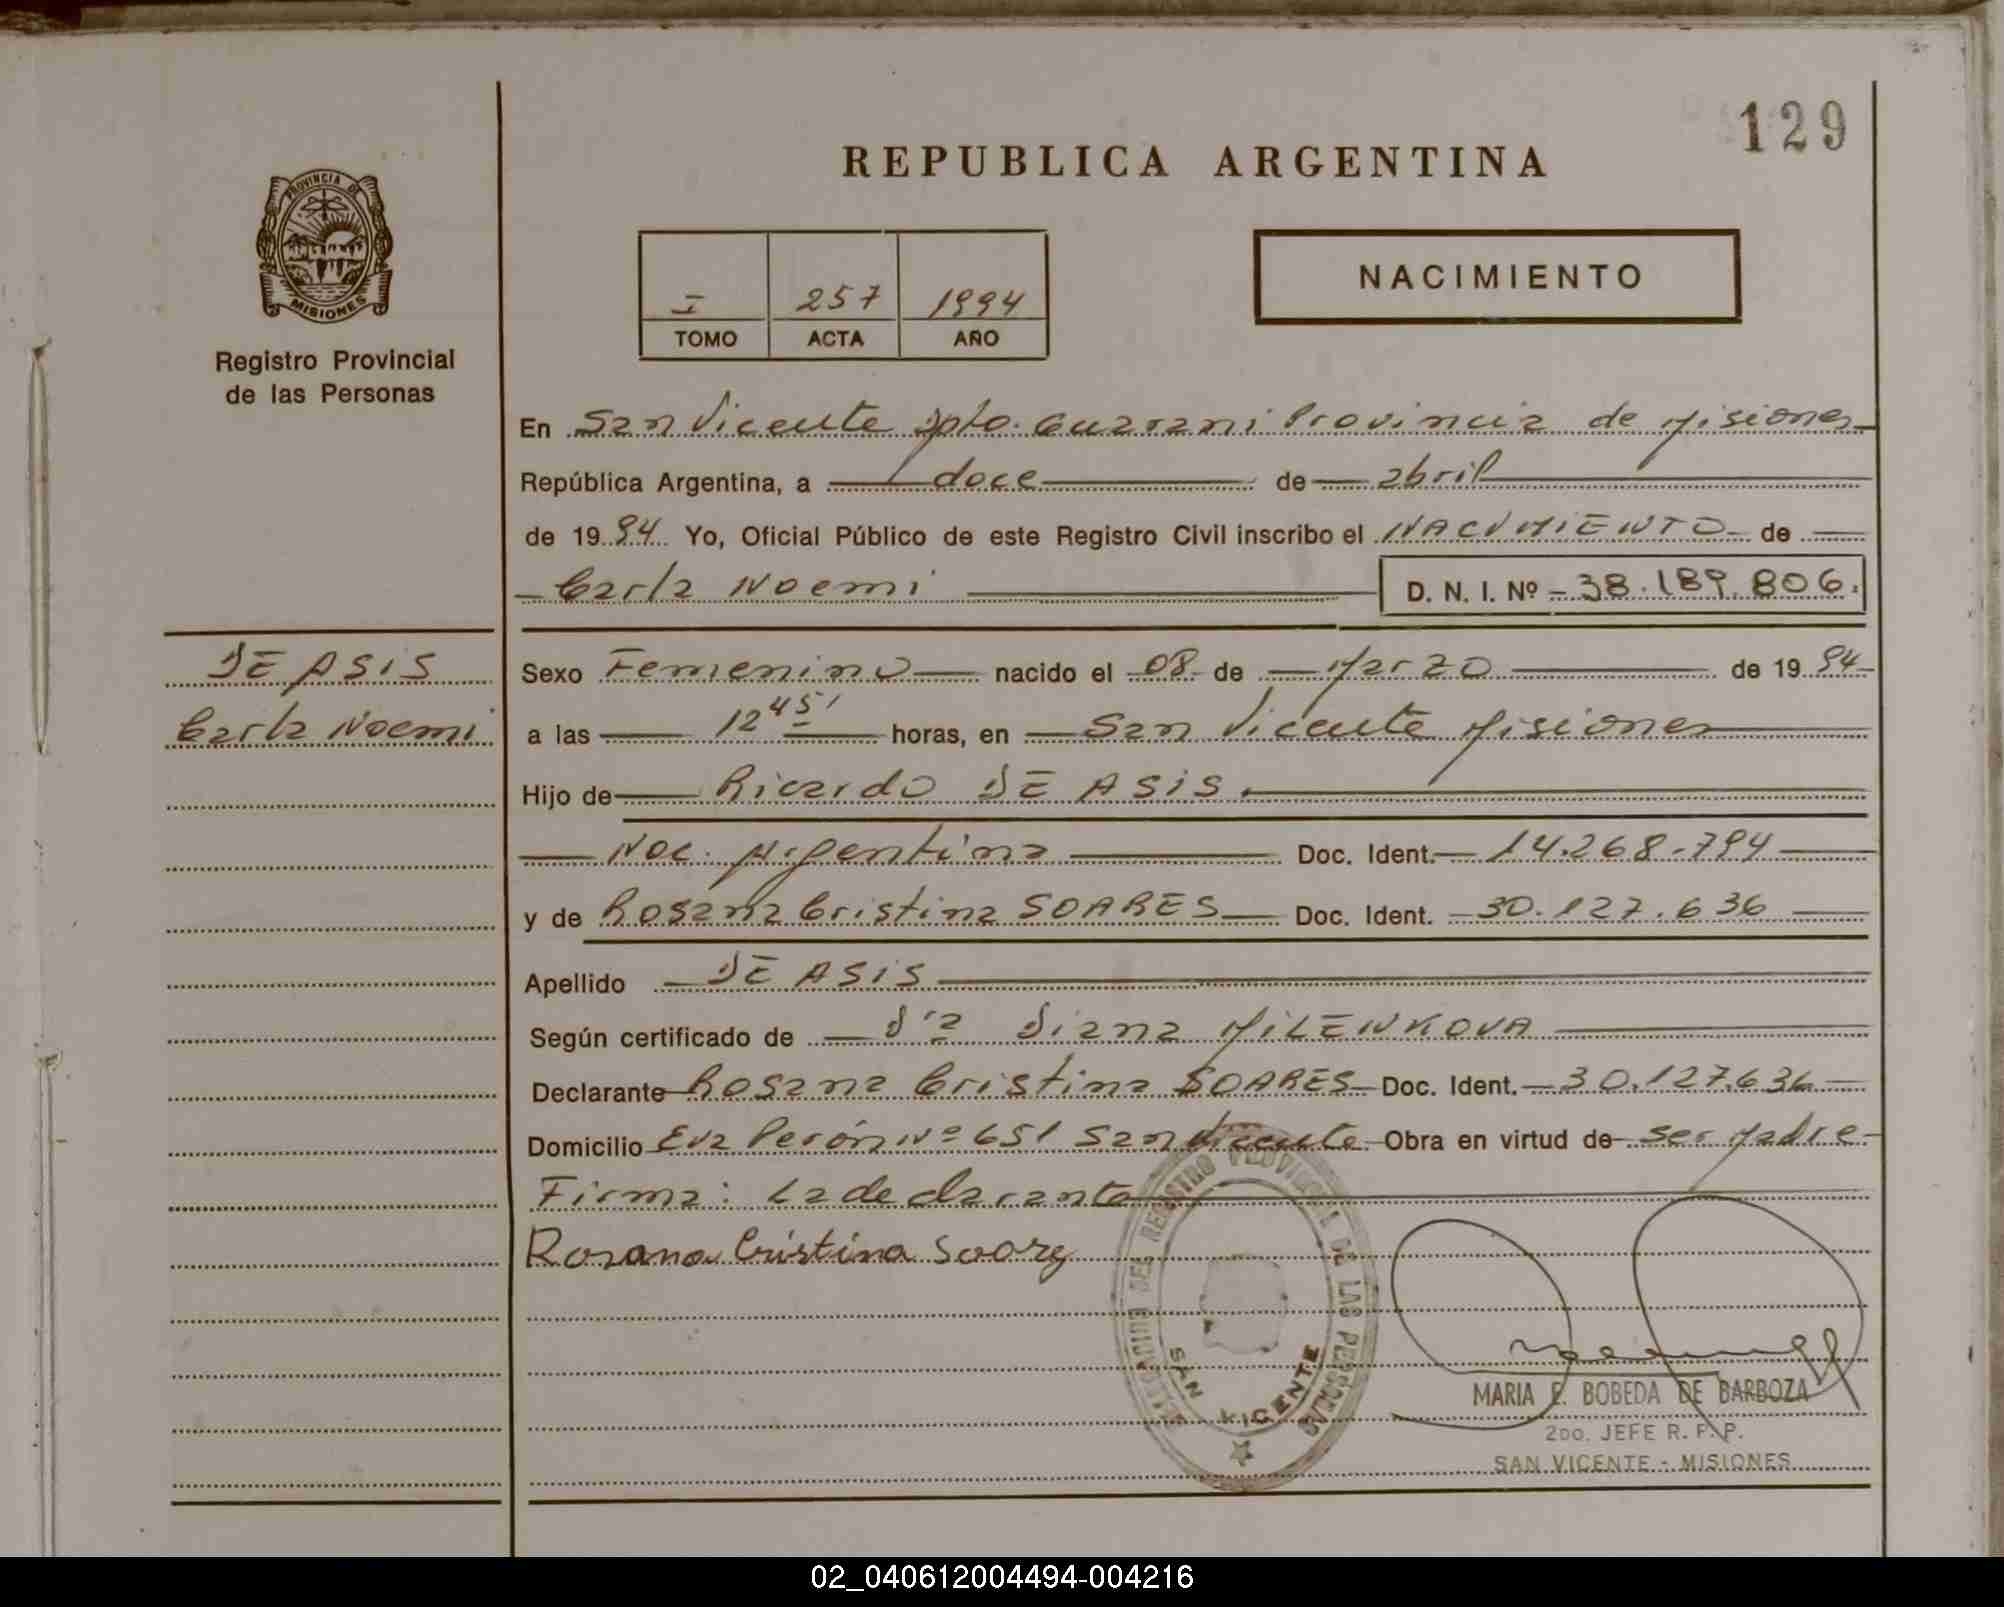 129
REPUBLICA ARGENTINA
PROVINCIA DE
MISIONES
Registro Provincial
de las Personas
I 257 1994
TOMO ACTA AÑO
NACIMIENTO
En San Vicente Dpto. Guarani Provincia de Misiones
República Argentina, a doce de abril
de 1994 Yo, Oficial Público de este Registro Civil inscribo el NACIMIENTO de
Carla Noemi D. N. I. Nº 38.189.806.
DE ASIS
Carla Noemi
Sexo Femenino nacido el 08 de Marzo de 1994
a las 12 45' horas, en San Vicente Misiones
Hijo de Ricardo DE ASIS.
Nac. Argentina Doc. Ident. 14.268.794
y de Rosana Cristina SOARES Doc. Ident. 30.127.636
Apellido DE ASIS
Según certificado de Dra Diana MILENKOVA
Declarante Rosana Cristina SOARES Doc. Ident. 30.127.636
Domicilio Eva Perón Nº 651 San Vicente Obra en virtud de ser Madre
Firma: La declarante
Rosana Cristina Soares
DEL REGISTRO PROVINCIAL DE LAS PERSONAS
SAN VICENTE
MARIA E. BOBEDA DE BARBOZA
2DO. JEFE R. P. P.
SAN VICENTE - MISIONES
02_040612004494-004216